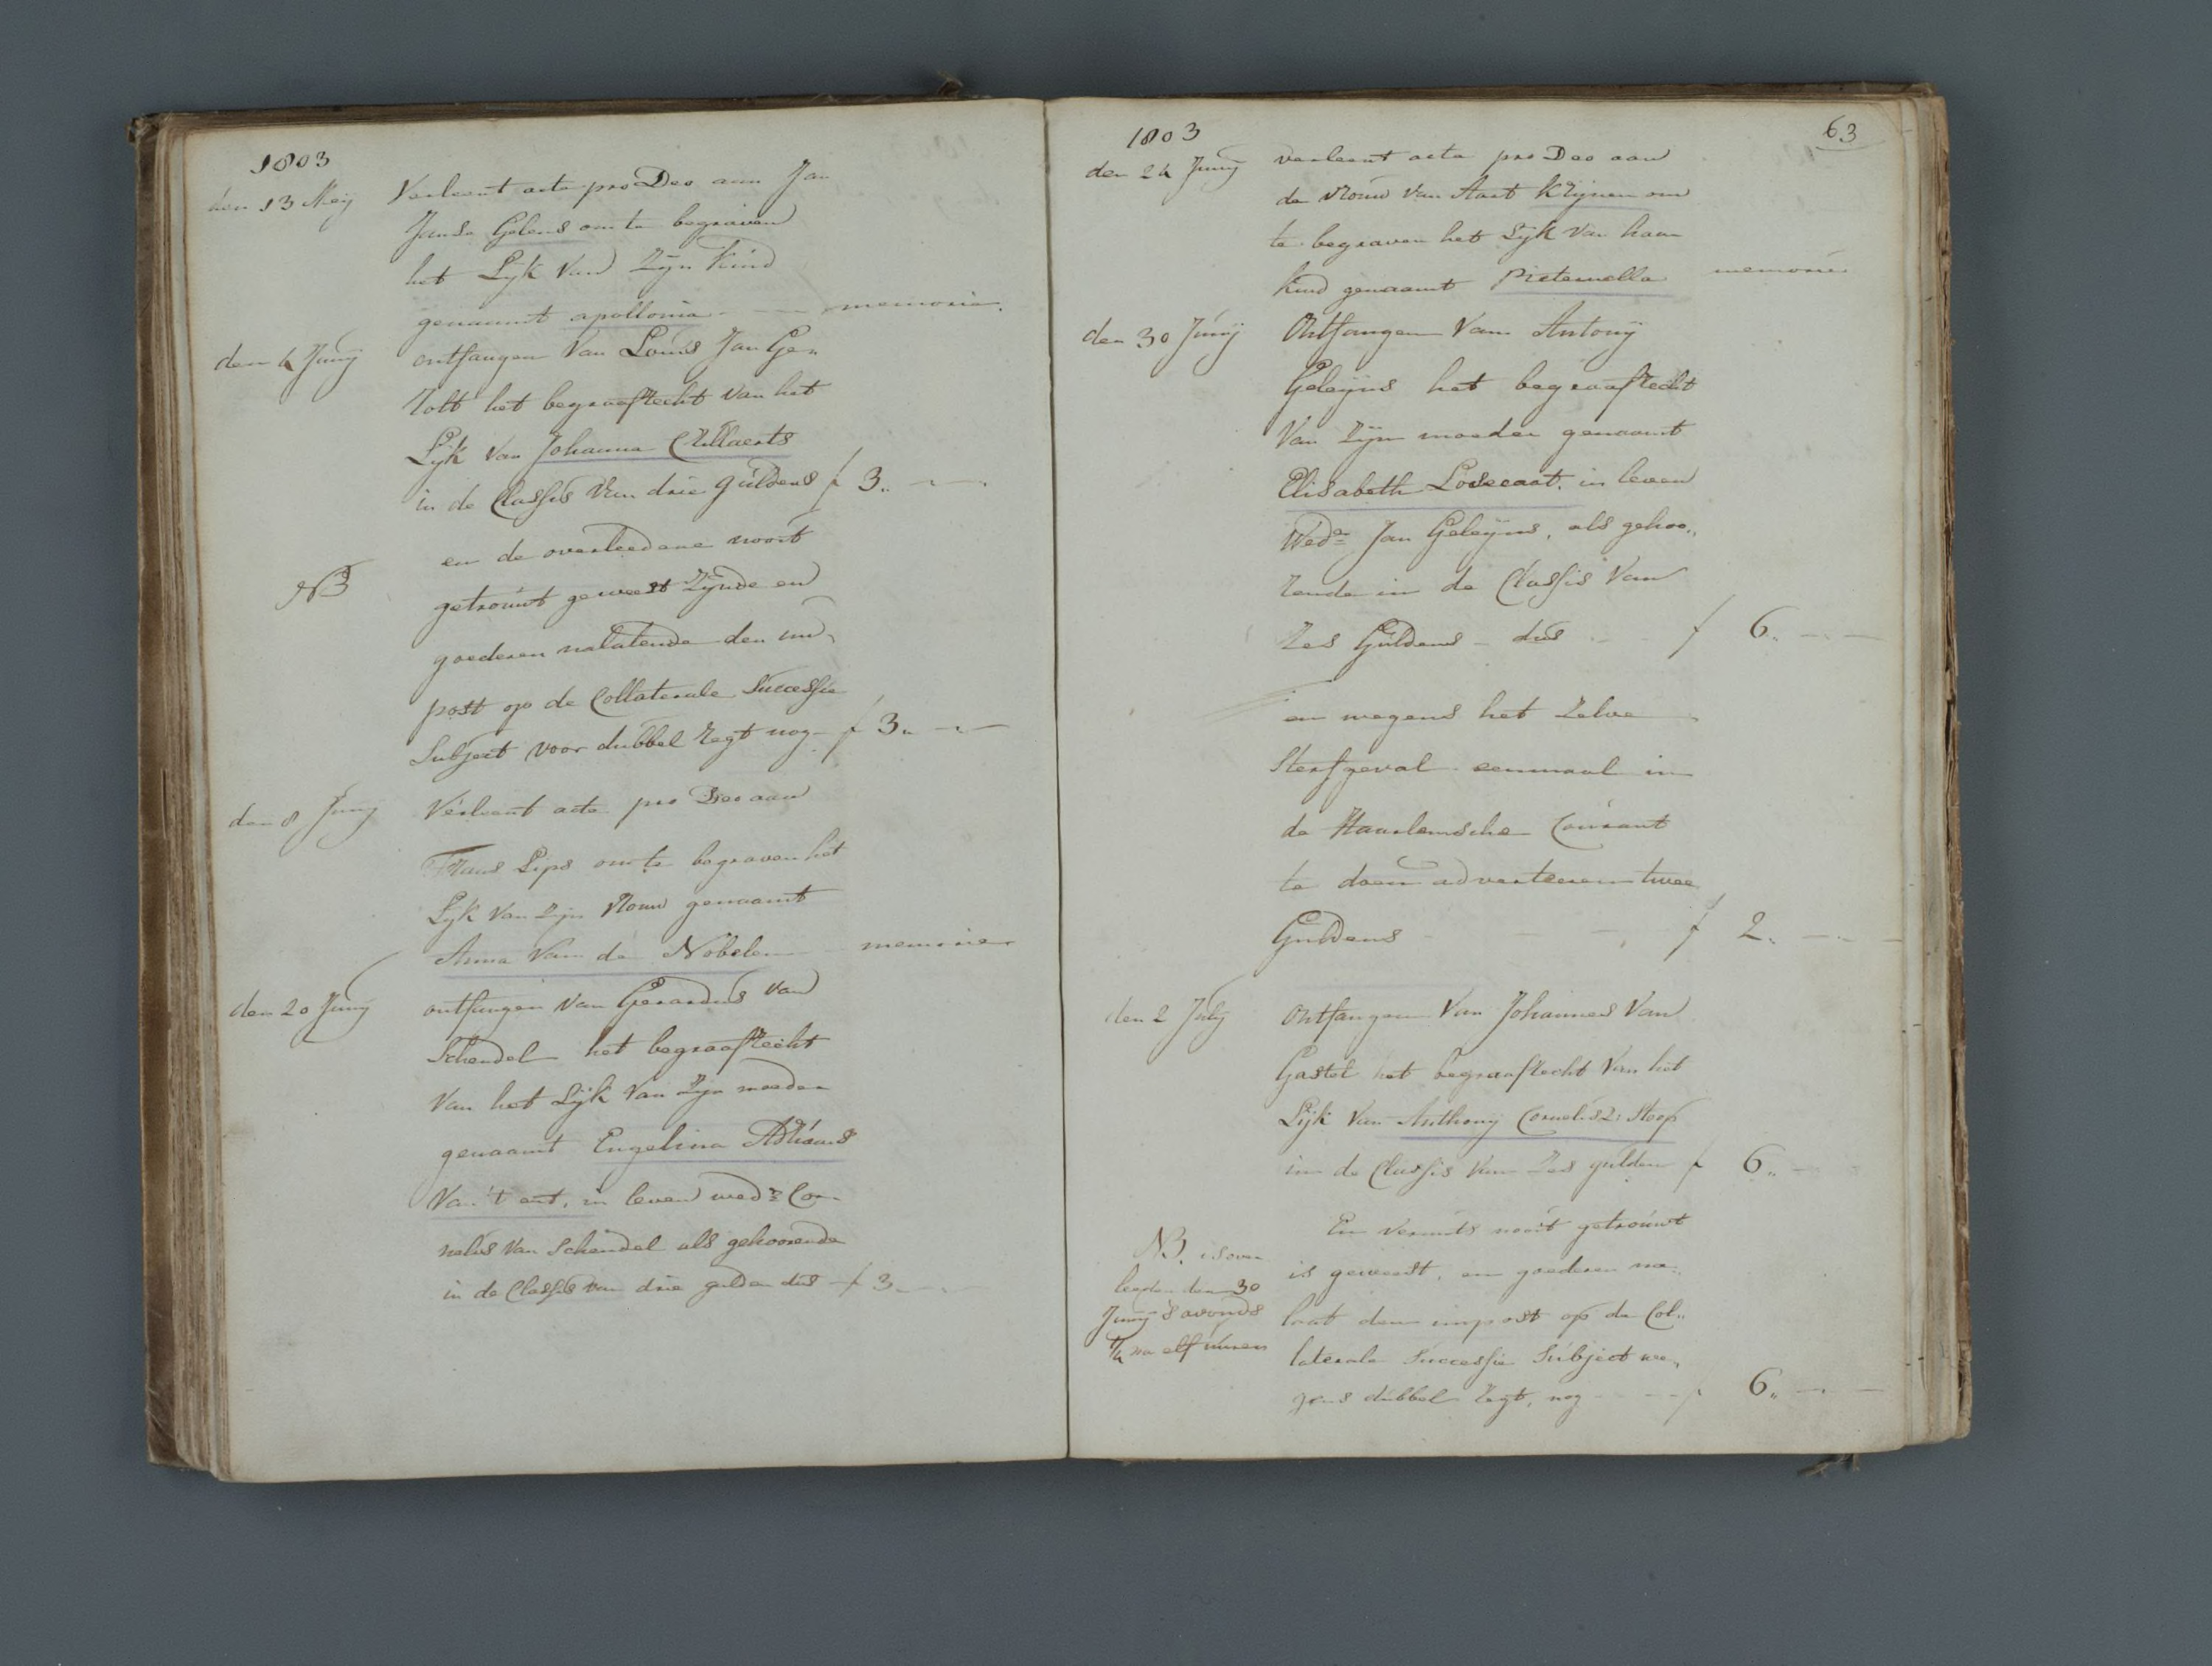 1803
den 13 Meij Verleent acte pro Deo aan Jan
Janse Gelens om te begraven
het Lijk Van Zijn Kind
genaamt apollonia - - - memorie.
den 4 Junij ontfangen Van Louis Jan Ger„
Zolt het begraafrecht Van het
Lijk Van Johanna
in de Classis Van drie guldens f 3„ - -
en de overleedene nooit
NB getrouwt geweest Zijnde en
goederen nalatende den im„
post op de Collaterale Successie
Subject voor dubbel regt nog - f 3„ - -
den 8 Junij Verleent acte pro Deo aan
Frans Lips om te begraven het
Lijk Van Zijn Vrouw genaamt
Anna Van de Nobelen - memorie
den 20 Junij ontfangen Van Gerardus Van
Schendel het begraafrecht
Van het Lijk Van Zijn moeder
genaamt Engelina Adriaans
Van 't ent, in leven wede Cor„
nelis Van Schendel als gehoorende
in de Classis van drie gulden dus - f 3„ - -
1803 63
den 24 Junij verleent acte pro Deo aan
de Vrouw Van Aart Krijnen om
te begraven het Lijk Van haar
kind genaamt Pieternella memorie
den 30 Junij Ontfangen Van Antonij
Geleijns het begraafrecht
Van Zijn moeder genaamt
Elisabeth Losecaat, in leven
Wede Jan Geleijns, als gehoo„
rende in de Classis Van
Zes Guldens - dus - - f 6„ - -
en wegens het Zelve
Sterfgeval eenmaal in
de Haarlemsche Courant
te doen adverteeren twee
Guldens - - - f 2„ - -
den 2 July Ontfangen Van Johannes Van
Gastel het begraafrecht Van het
Lijk Van Anthony Cornelisz: Stoop
in de Classis Van Zes gulden f 6„ -
En vermits nooit getrouwt
NB. is over
is geweest, en goederen na„
leeden den 30
Junij 's avonds laat den impost op de Col„
¼ na elf uuren
laterale Successie Subject we„
gens dubbel regt, nog - - - f 6„ - -